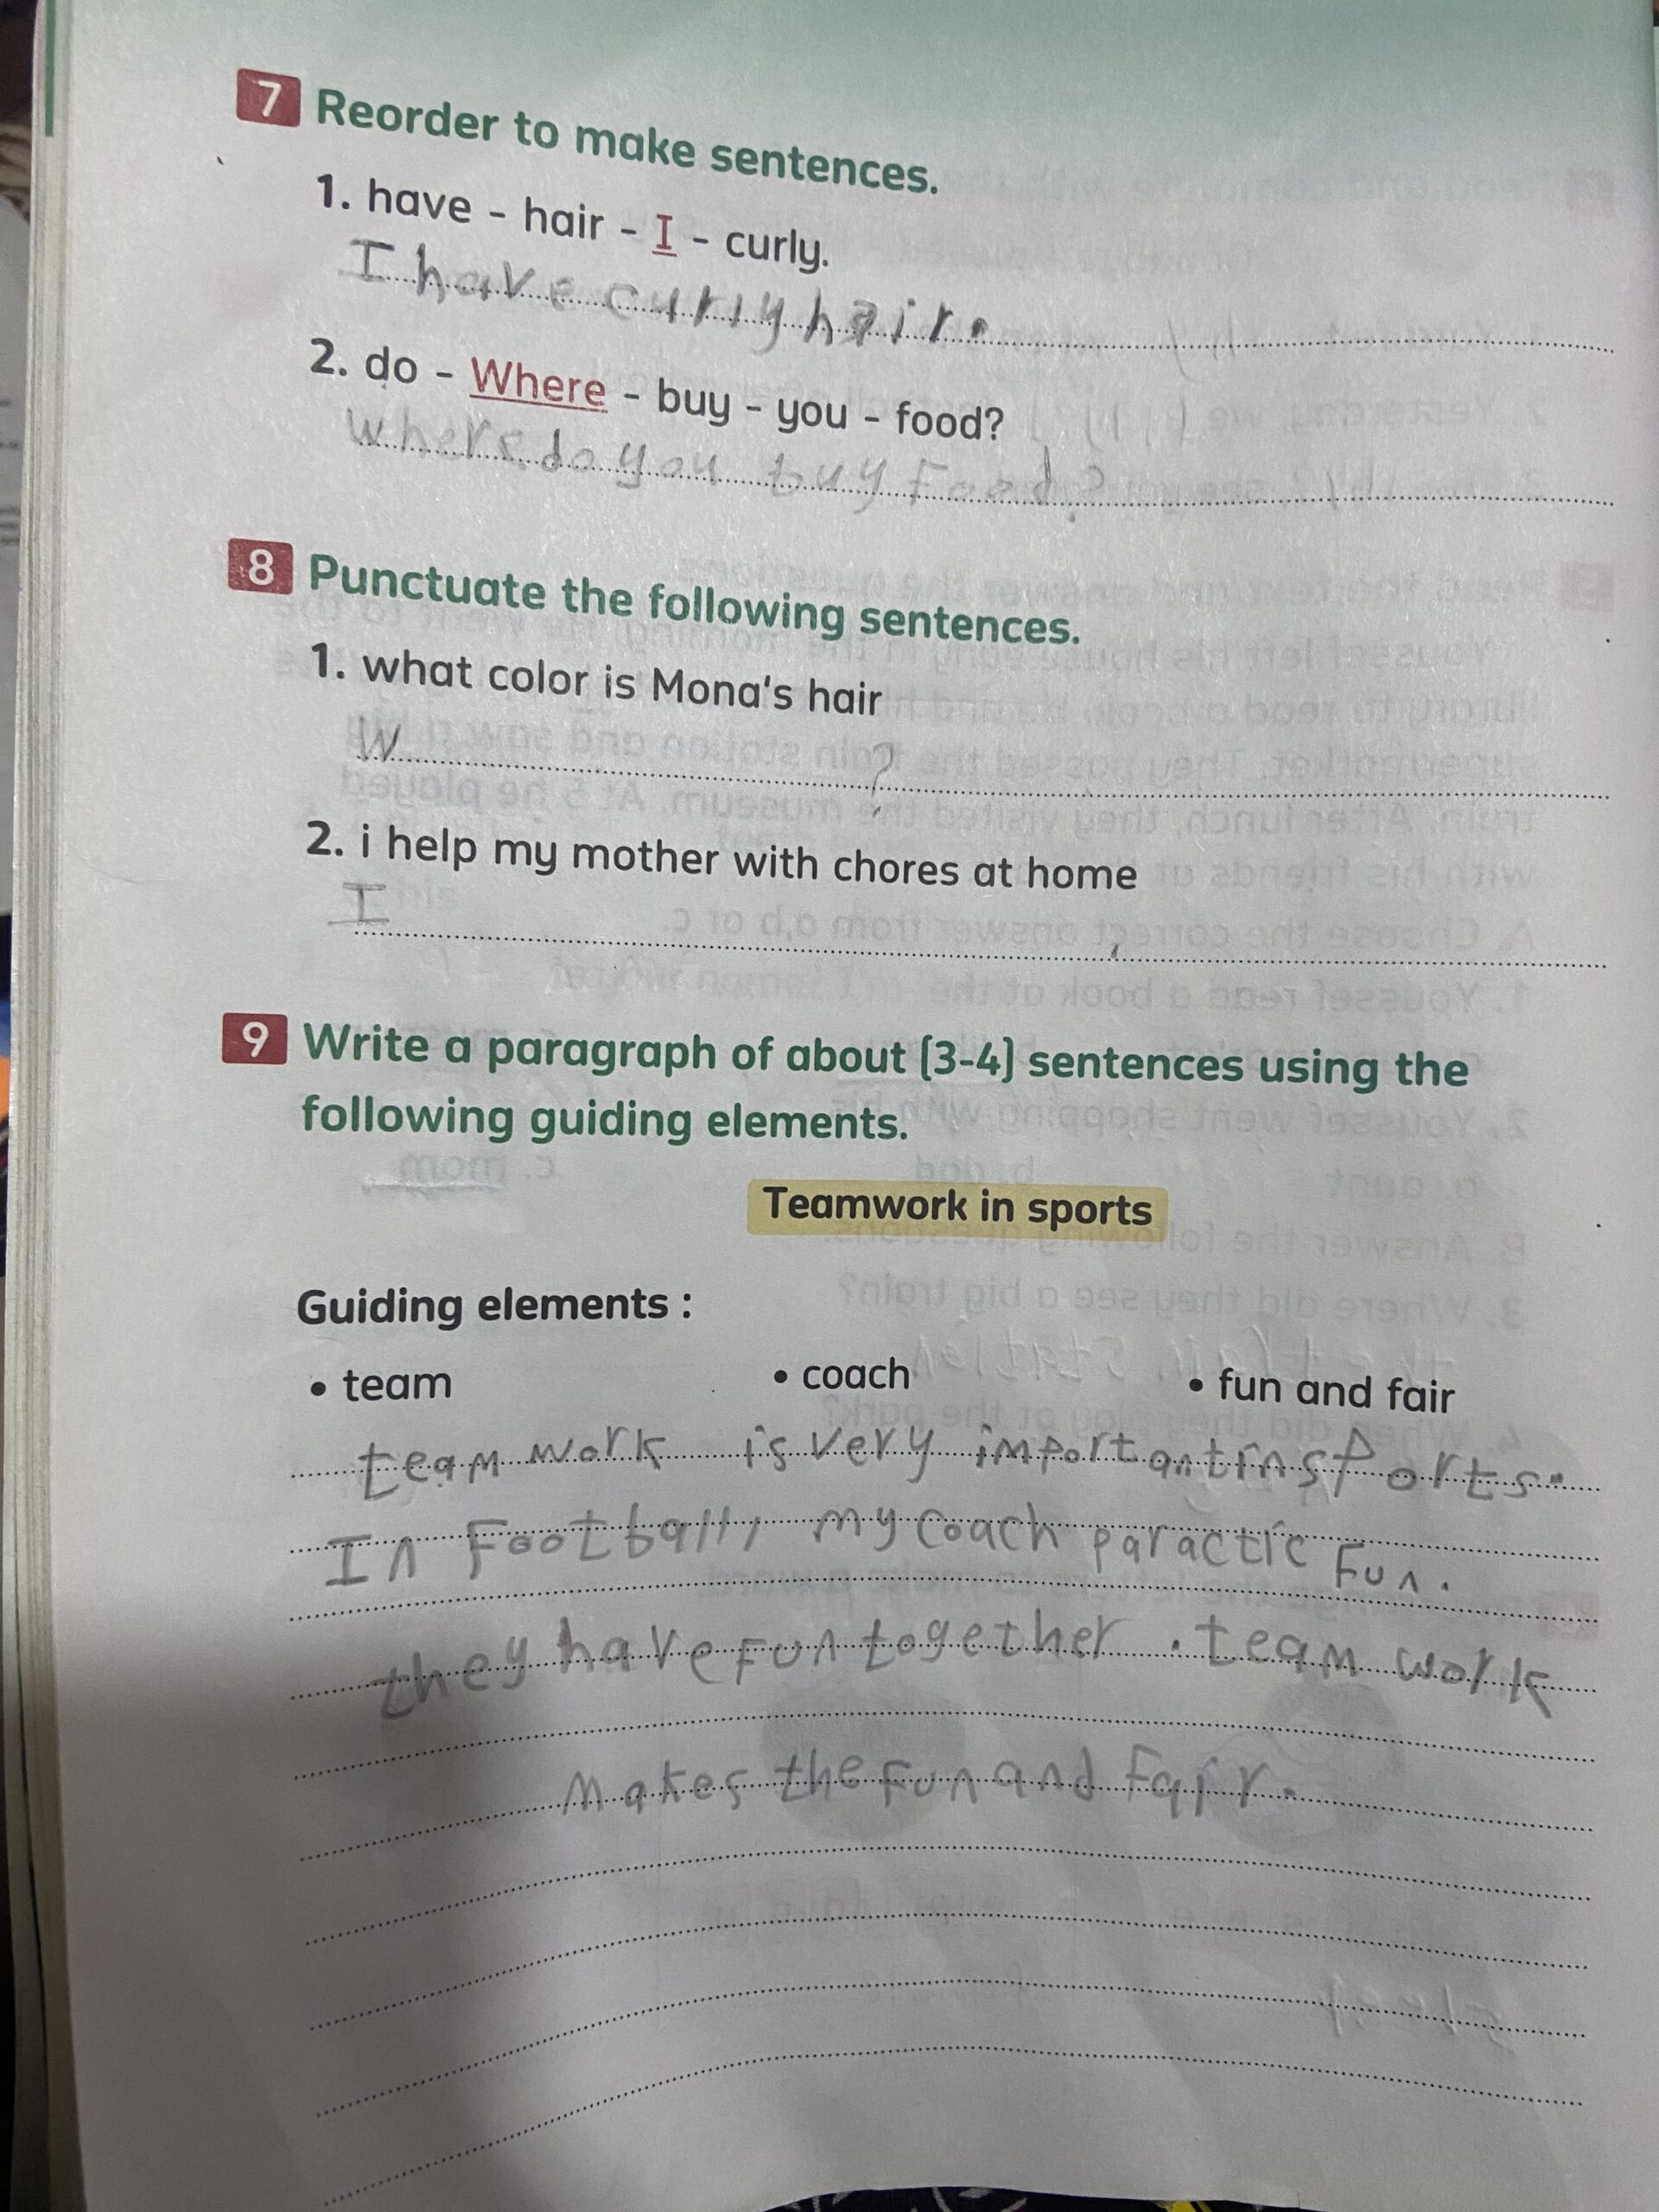 7 Reorder to make sentences.
1. have - hair - I - curly.
I have curly hair.
2. do - Where - buy - you - food?
where do you buy Food?
8 Punctuate the following sentences.
1. what color is Mona's hair
W ?
2. i help my mother with chores at home
I .
9 Write a paragraph of about (3-4) sentences using the
following guiding elements.
Teamwork in sports
Guiding elements :
• team • coach • fun and fair
team work is very important in sports.
In Football, my coach paractic Fun.
they have Fun together. team work
makes the Fun and Fair.